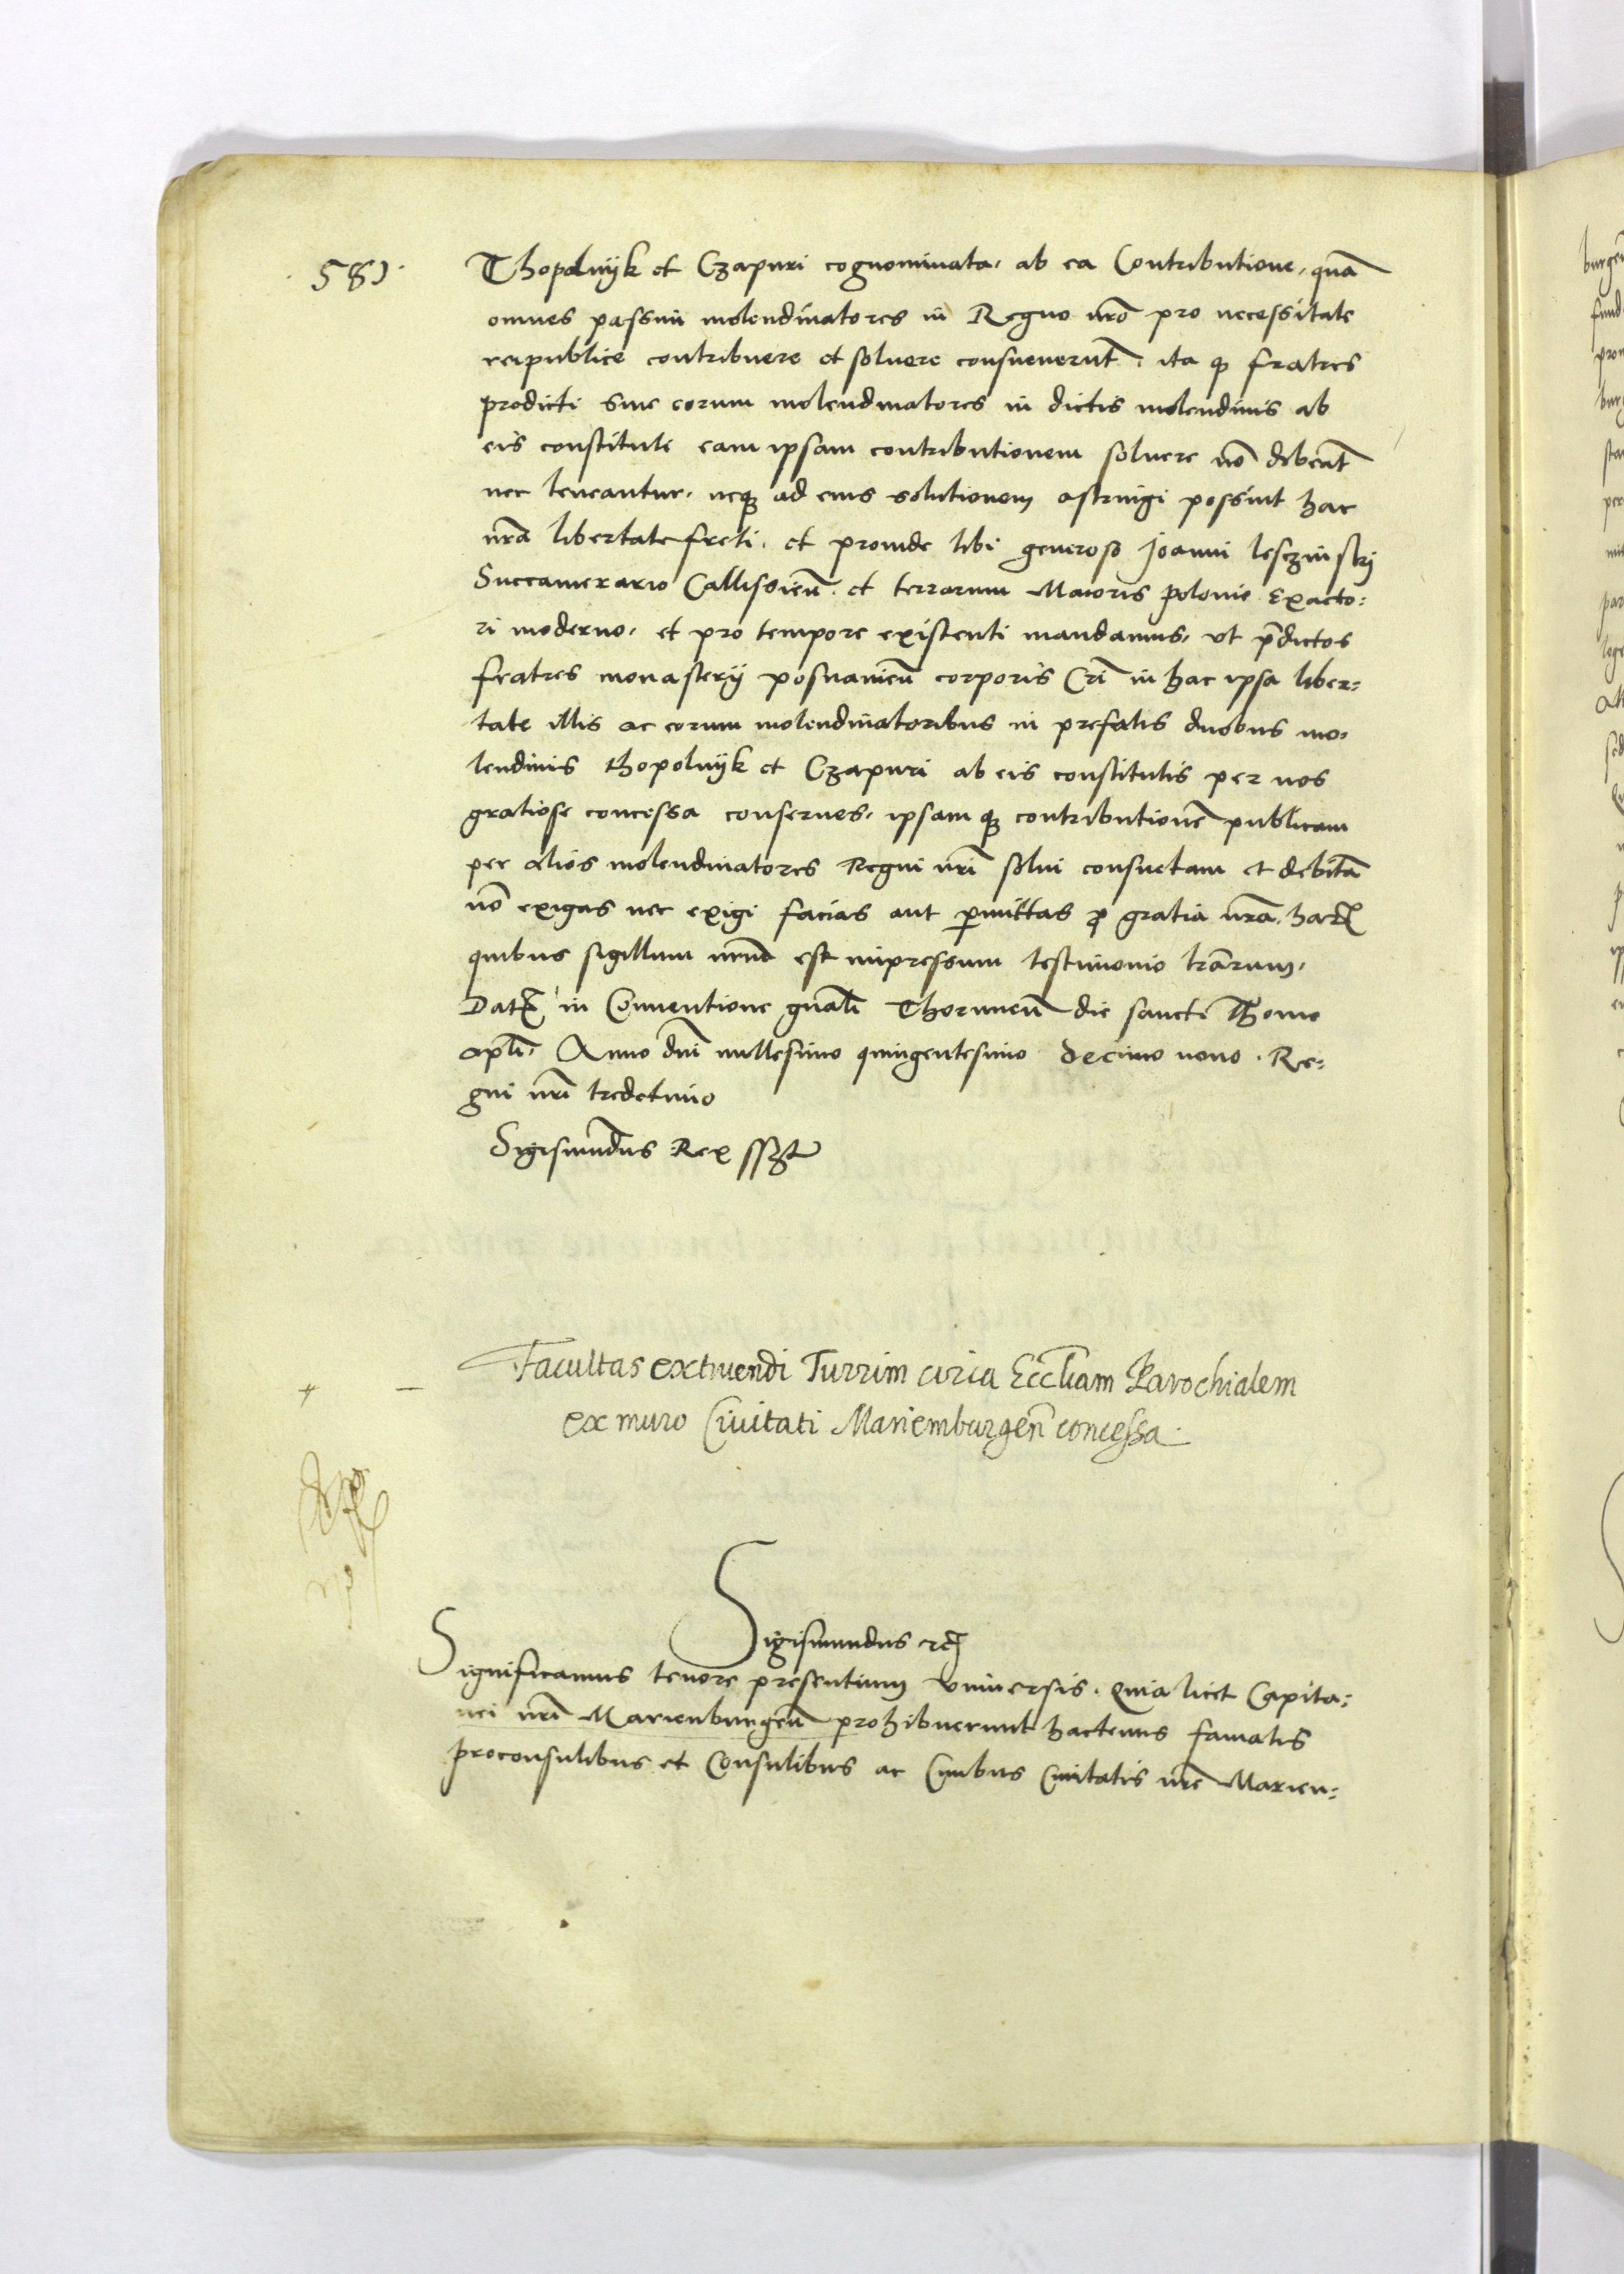 581.
Thopolnijk et Czapuri cognominata, ab ea Contributione, quā
omnes passim molendinatores in Regno nr̄o pro necessitate
reipublice contribuere et soluere consueuerūt, ita ꝙ fratres
predicti siue eorum molendinatores in dictis molendinis ab
eis constituti eam ipsam contributionem soluere nō debeāt
nec teneantur, neqꝫ ad eius solutionem astringi possint hac
nr̄a libertate freti. et proinde tibi generoso Joanni lesczinskj
Succamerario Callissieñ. et terrarum Maioris polonie Exacto:
ri moderno, et pro tempore existenti mandamus, vt p̄dictos
fratres monasterij posnanieñ corporis Cri̅ in hac ipsa liber:
tate illis ac eorum molendinatoribus in prefatis duobus mo:
lendinis thopolnijk et Czapuri ab eis constitutis per nos
gratiose concessa conserues, ipsam qꝫ contributionē publicam
per alios molendinatores Regni nr̄i solui consuetam et debitā
nō exigas nec exigi facias aut ꝑmittas ꝓ gratia nr̄a. harꝝ
quibus sigillum nr̄um est impressum testimonio lr̄arum.
Datꝝ in Conuentione gn̄ali Thoruneñ die sancti Thome
apl̄i, Anno dn̄i millesimo quingentesimo decimo nono. Re:
gni nr̄i tredecimo
Sigismūdus Rex sszt
+ – Facultas extruendi Turrim circa Eccl̄iam Parochialem
ex muro Ciuitati Mariemburgeñ concessa.
Sigismundus rcꝫ
Significamus tenore presentium vniuersis. Quia licet Capita:
nei nr̄i Marienburgeñ prohibuerunt hactenus famatis
proconsulibus et Consulibus ac Ciuibus Ciuitatis nr̄e Marien: